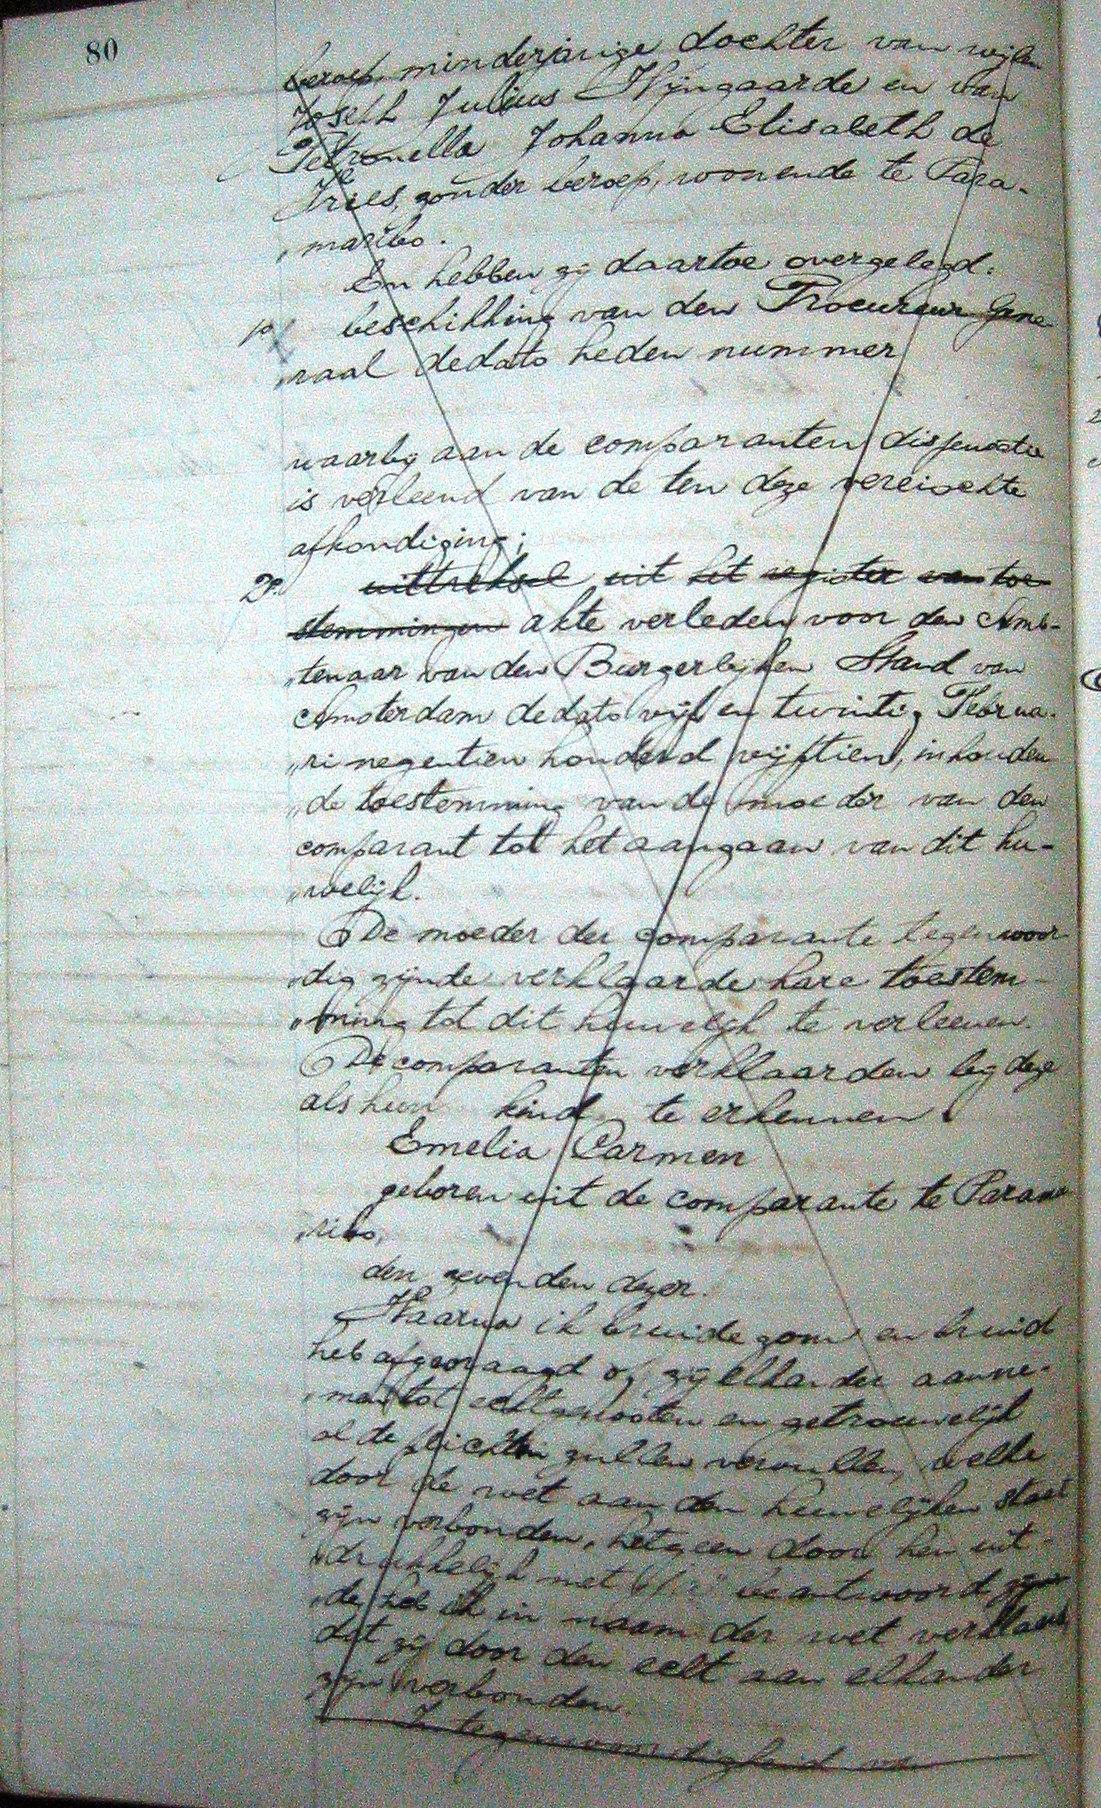 80
beroep minderjarige dochter van wijlen
Joseph Julius Wijngaarde en van
Petronella Johanna Elisabeth de
Vries, zonder beroep, wonende te Para-
„maribo.
En hebben zij daartoe overgelegd:
1o beschikking van den Procureur Gene
„raal dedato heden nummer
waarbij aan de comparanten dispensatie
is verleend van de ten deze vereischte
afkondiging;
2o. uittreksel uit het register van toe
stemmingen akte verleden voor den Amb-
„tenaar van den Burgerlijken Stand van
Amsterdam dedato vijf en twintig Februa-
„ri negentien honderd vijftien, inhouden
„de toestemming van de moeder van den
comparant tot het aangaan van dit hu-
„welijk.
De moeder der comparante tegenwoor
„dig zijnde verklaarde hare toestem-
„ming tot dit huwelijk te verleenen.
De comparanten verklaarden bij deze
als hun kind te erkennen
Emelia Carmen
geboren uit de comparante te Parama
„ribo,
den zevenden dezer.
Waarna ik bruidegom en bruid
heb afgevraagd of zij elkander aanne-
„men tot echtgenooten en getrouwelijk
al de plichten zullen vervullen, welke
door de wet aan den huwelijken staat
zijn verbonden, hetgeen door hen uit-
„drukkelijk met "Ja" beantwoord zijn
„de, heb ik in naam der wet verklaard
dat zij door den echt aan elkander
zijn verbonden.
In tegenwoordigheid van